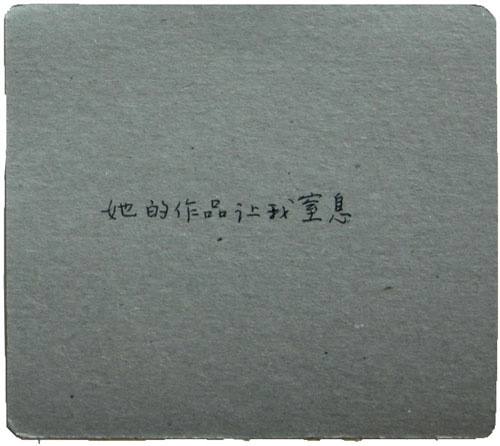 她的作品让我窒息